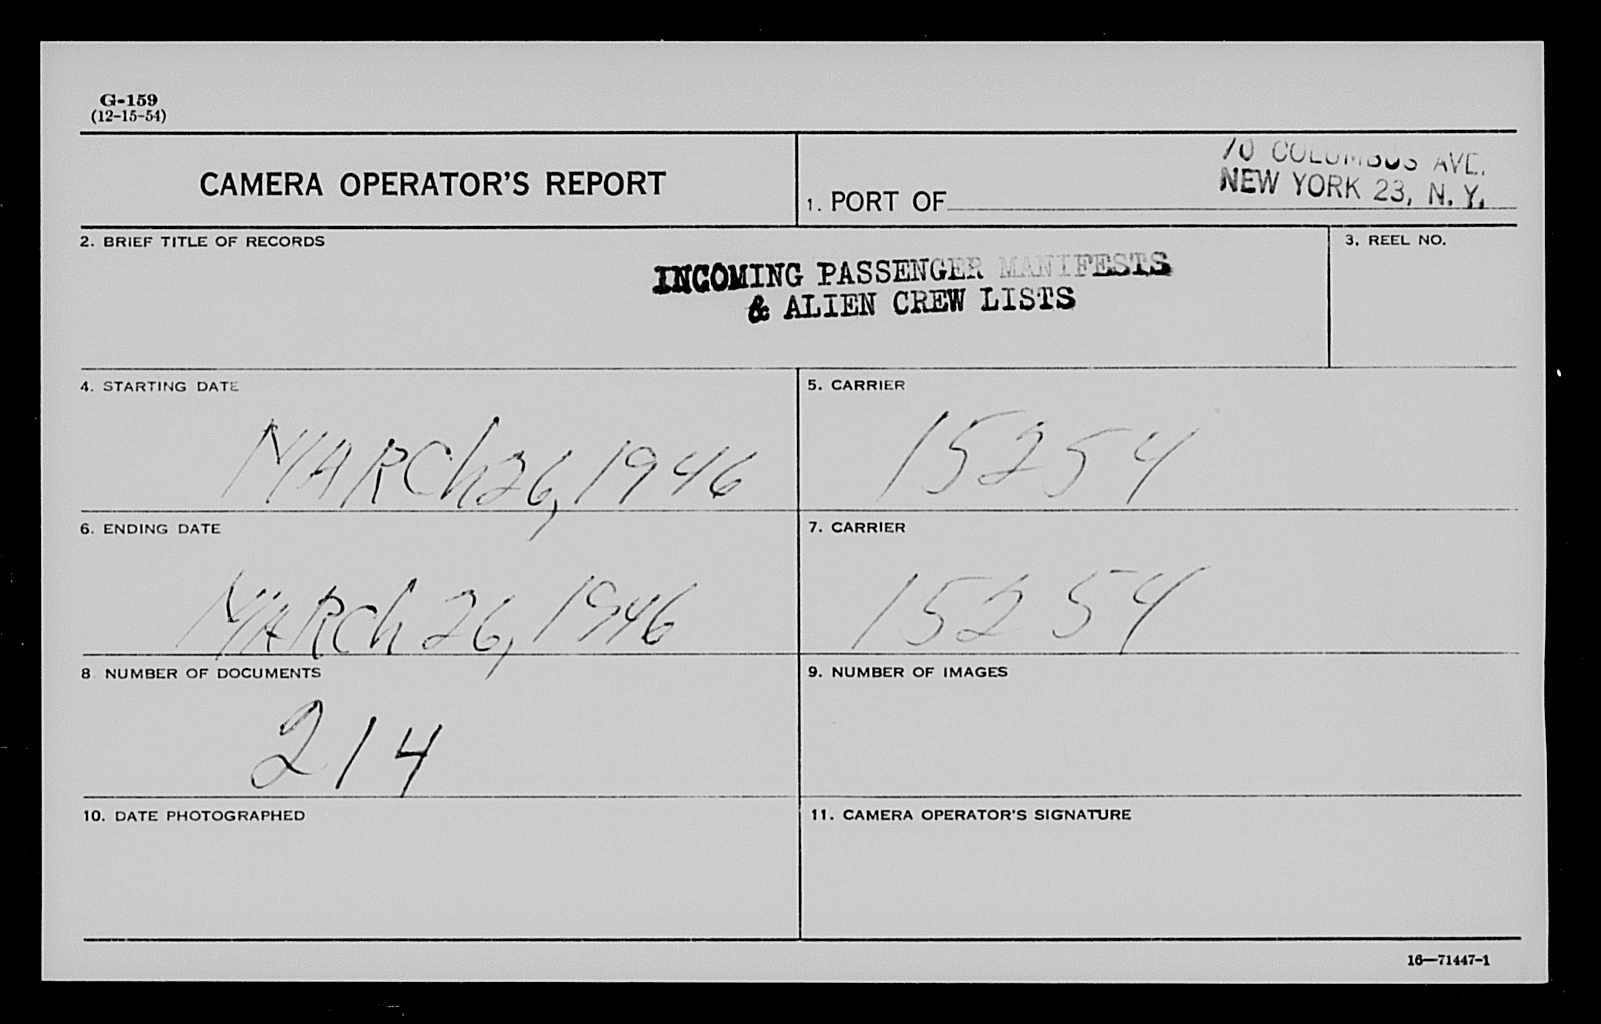 G-159
(12-15-54)
CAMERA OPERATOR'S REPORT
1. PORT OF
70 COLUMBUS AVE.
NEW YORK 23, N. Y.
2. BRIEF TITLE OF RECORDS
INCOMING PASSENGER MANIFESTS
& ALIEN CREW LISTS
3. REEL NO.
4. STARTING DATE
MARCh 26, 1946
5. CARRIER
15254
6. ENDING DATE
MARCh 26, 1946
7. CARRIER
15254
8 NUMBER OF DOCUMENTS
214
9. NUMBER OF IMAGES
10. DATE PHOTOGRAPHED
11. CAMERA OPERATOR'S SIGNATURE
16—71447-1